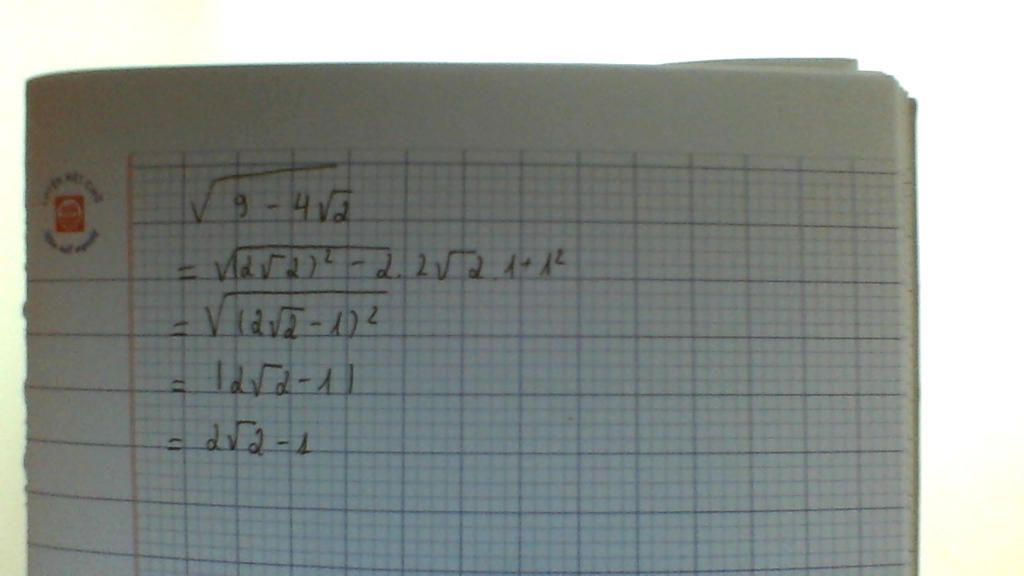 √(9 - 4√2)
= √((2√2)² - 2. 2√2 .1+1²
= √((2√2-1)²
= |2√2-1|
= 2√2-1